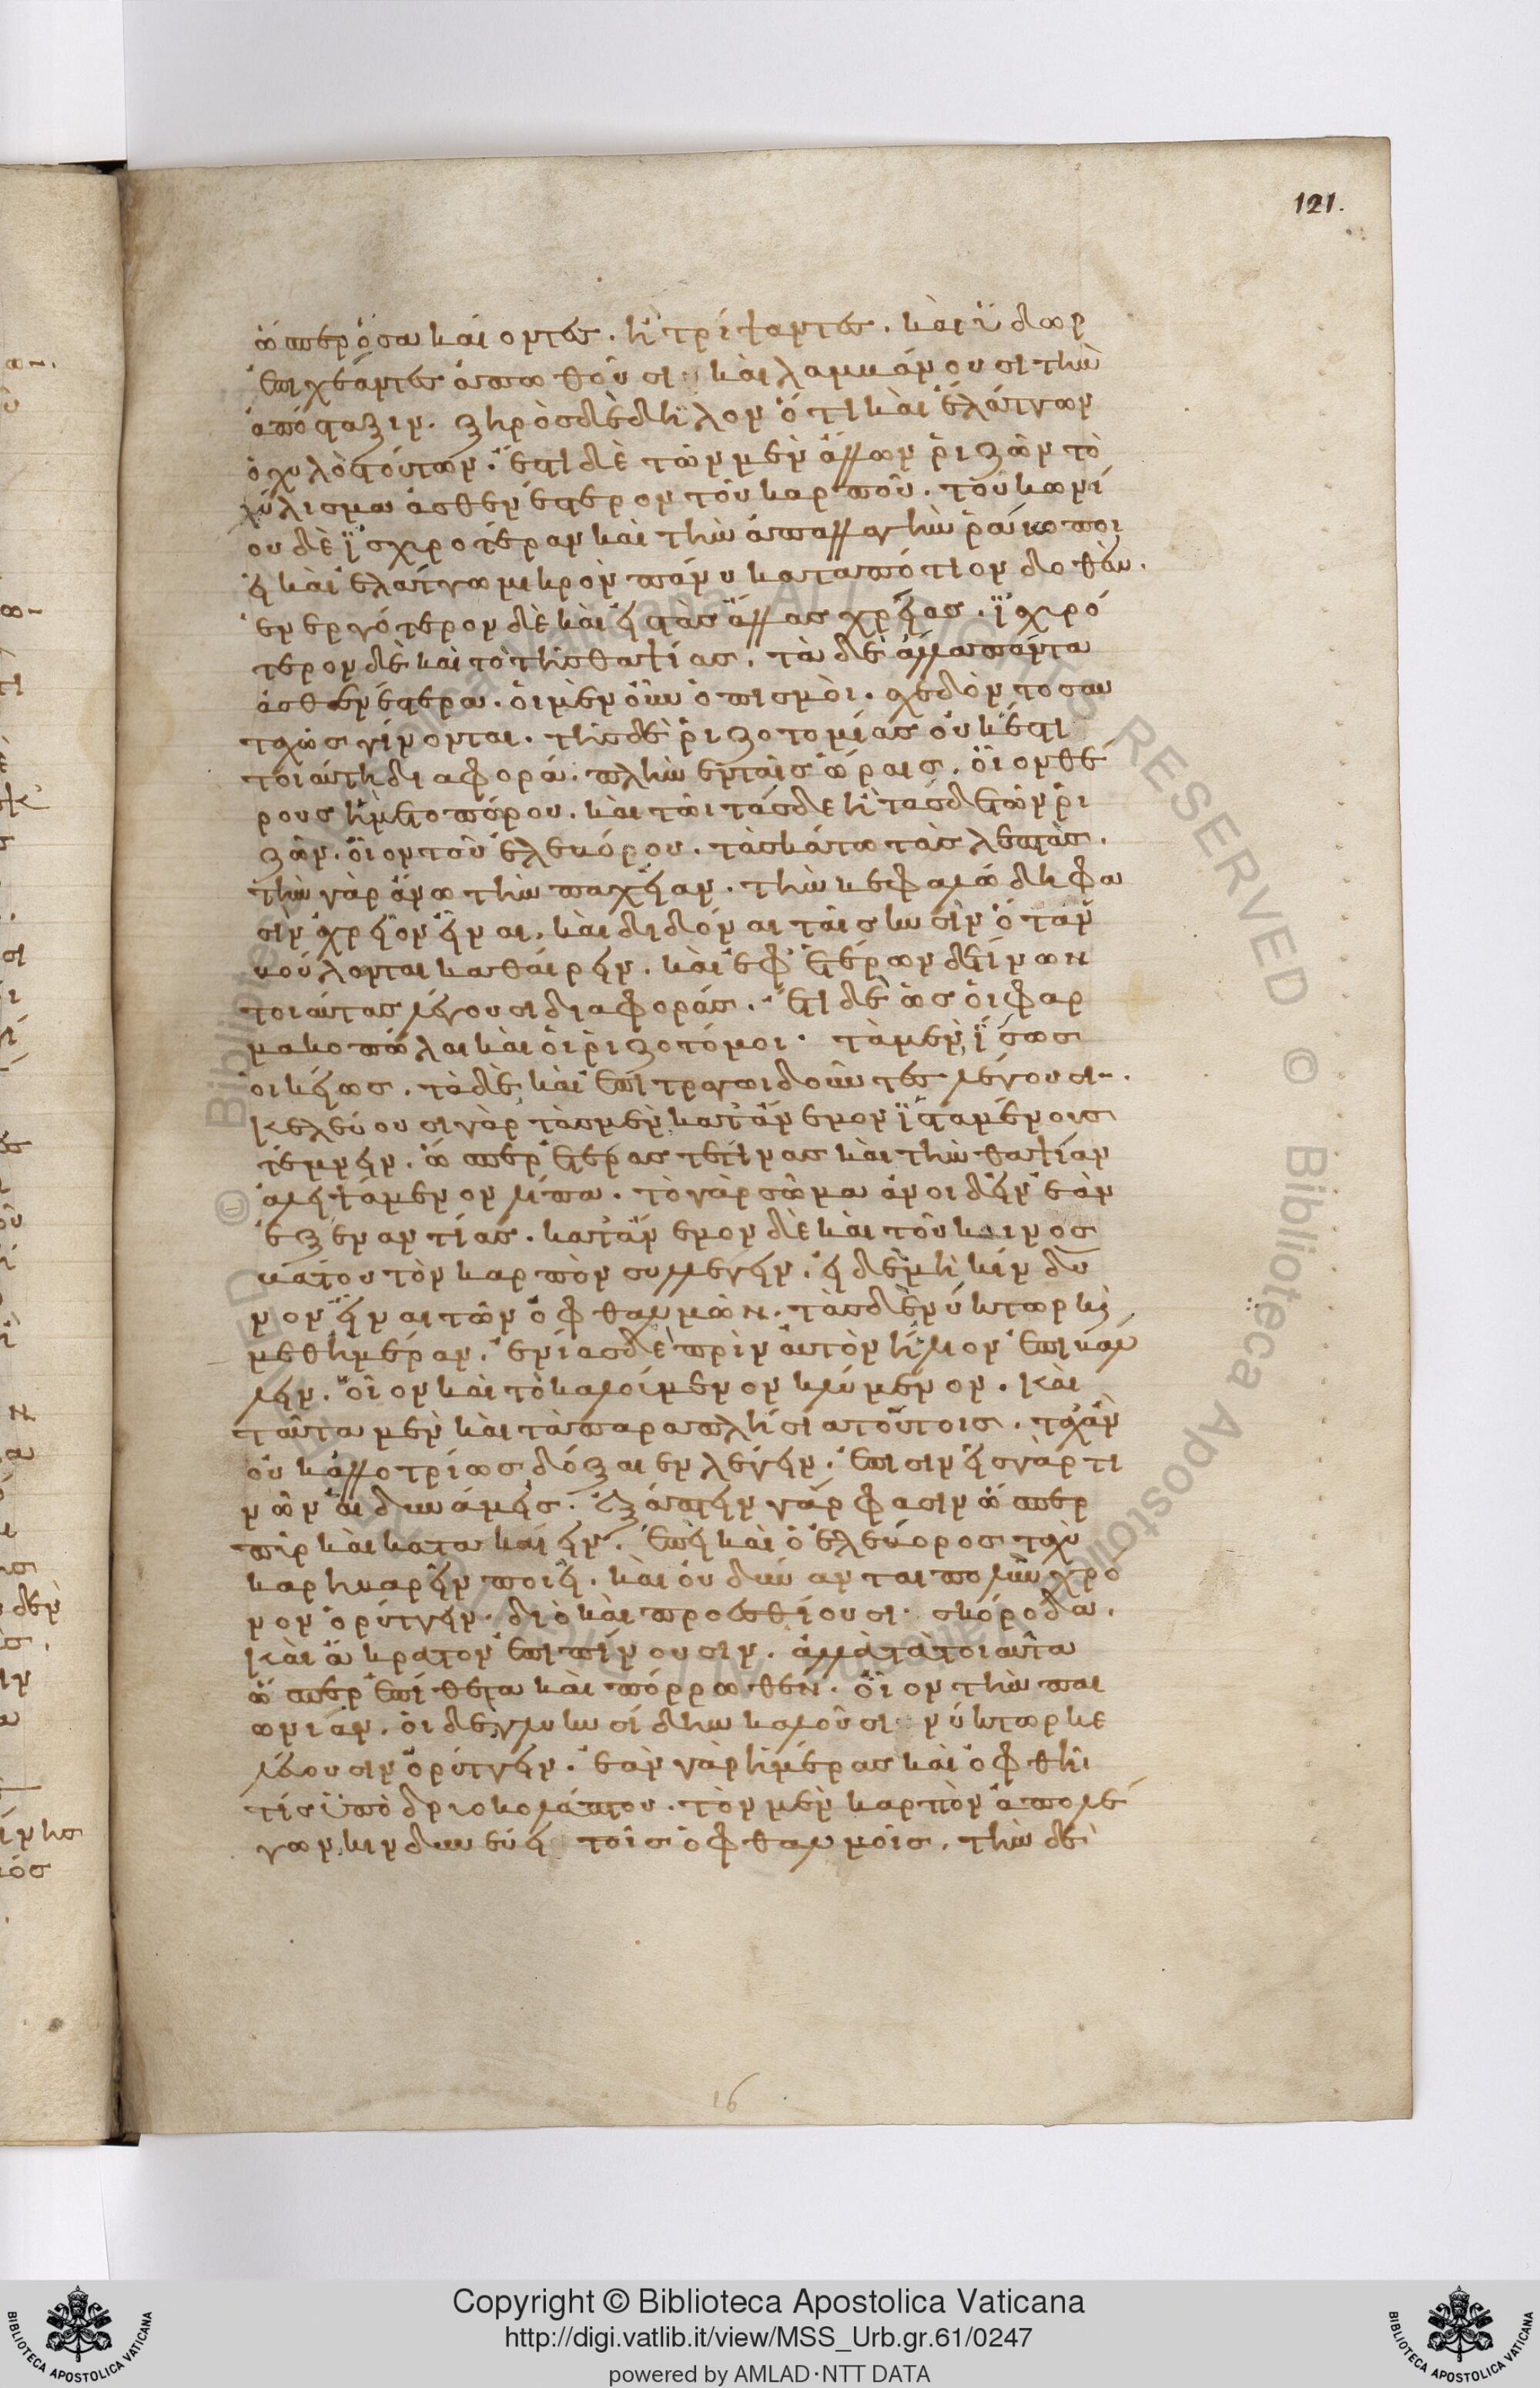 ὥσπερ ὅσα καίοντες. ἢ τρίψαντες. καὶ ὕδωρ
ἐπιχέαντες ἀπωθοῦσι· καὶ λαμβάνουσι τὴν
ἀπόσταξιν. ξηρὸς δὲ δῆλον ὅτι καὶ ἐλάττων
ὁ χυλὸς τούτων. ἔστι δὲ τῶν μὲν ἄλλων ῥιζῶν τὸ
χύλισμα ἀσθενέστερον τοῦ καρποῦ. τοῦ κωνί
ου δὲ ἰσχυροτέραν καὶ τὴν ἀπαλλαγὴν ῥάιω ποι
εῖ καὶ ἐλάττω μικρὸν πάνυ καταπότιον δοθέν.
ἐνεργότερον δὲ καὶ εἰ τὰς ἄλλας χρείας. ἰσχυρό
τερον δὲ καὶ τὸ τῆς θαψίας. τὰ δὲ ἄλλα πάντα
ἀσθενέστερα. οἱ μὲν οὖν ὀπισμοὶ. σχεδὸν τοσαυ
ταχῶς γίνονται. τῆς δὲ ῥιζοτομίας οὐκ ἔστι
τοιαύτη διαφορά. πλὴν ἐν ταῖς ὥραις. οἷον θέ
ρους ἢ μετοπόρου. καὶ τῶι τάσδε ἢ τάσδε τῶν ῥι
ζῶν. οἷον τοῦ ἐλεβόρου. τὰς κάτω τὰς λεπτὰς.
τὴν γὰρ ἄνω τὴν παχεῖαν. τὴν κεφαλώδη φα
σιν ἀχρεῖον εἶναι. καὶ διδόναι ταῖς κυσὶν ὅταν
βούλονται καθαίρειν. καὶ ἐφ' ἑτέρων δέ τινων
τοιαύτας λέγουσι διαφοράς. ἔτι δὲ ὡς οἱ φαρ
μακοπῶλαι καὶ οἱ ῥιζοτόμοι. τὰ μὲν ἴσως
οἰκείως. τὰ δὲ καὶ ἐπιτραγωιδοῦντες λέγουσιν.
κελεύουσι γὰρ τὰς μὲν κατ' ἄνεμον ἱσταμένους
τέμνειν. ὥσπερ ἑτέρας τέ τινας καὶ τὴν θαψίαν
ἀλειψάμενον λίπα. τὸ γὰρ σῶμα ἀνοιδεῖν ἐὰν
ἐξ ἐναντίας. κατ' ἄνεμον δὲ καὶ τοῦ κοινος
βάτου τὸν καρπὸν συλλέγειν. εἰ δὲ μὴ κίνδυ
νον εἶναι τῶν ὀφθαλμῶν. τὰς δὲ νύκτωρ καὶ
μεθημέραν. ἐνίας δὲ πρὶν αὐτὸν ἥλιον ἐπιβάλ
λειν. οἷον καὶ τὸ καλούμενον κλύμενον. καὶ
ταῦτα μὲν καὶ τὰ παραπλήσια τούτοις. ταχ' ἂν
οὐκ ἀλλοτρίως δόξαιεν λέγειν. ἐπισινεῖς γάρ τι
νῶν αἱ δυνάμεις. ἐξάπτειν γάρ φασιν ὥσπερ
πῦρ καὶ κατακαίειν. ἐπεὶ καὶ ὁ ἐλεβορος ταχὺ
καρηβαρεῖν ποιεῖ. καὶ οὐ δύνανται πολὺν χρό
νον ὀρύττειν. διὸ καὶ προεσθίουσι σκόροδα.
καὶ ἄκρατον ἐπιπίνουσιν. ἀλλὰ τὰ τοιαῦτα
ὥσπερ ἐπίθετα καὶ πόρρωθεν. οἷον τὴν παι
ωνιάν. οἱ δὲ γλυκυσίδην καλοῦσι νύκτωρ κε
λέουσιν ὀρύττειν. ἐὰν γὰρ ἡμέρας καὶ ὀφθῆι
τίς ὑπὸ δριοκολάπτου. τὸν μὲν καρπὸν ἀπολέ
γων. κινδυνεύει τοῖς ὀφθαλμοῖς. τὴν δὲ
121.
16
Copyright © Biblioteca Apostolica Vaticana
http://digi.vatlib.it/view/MSS_Urb.gr.61/0247
powered by AMLAD·NTT DATA